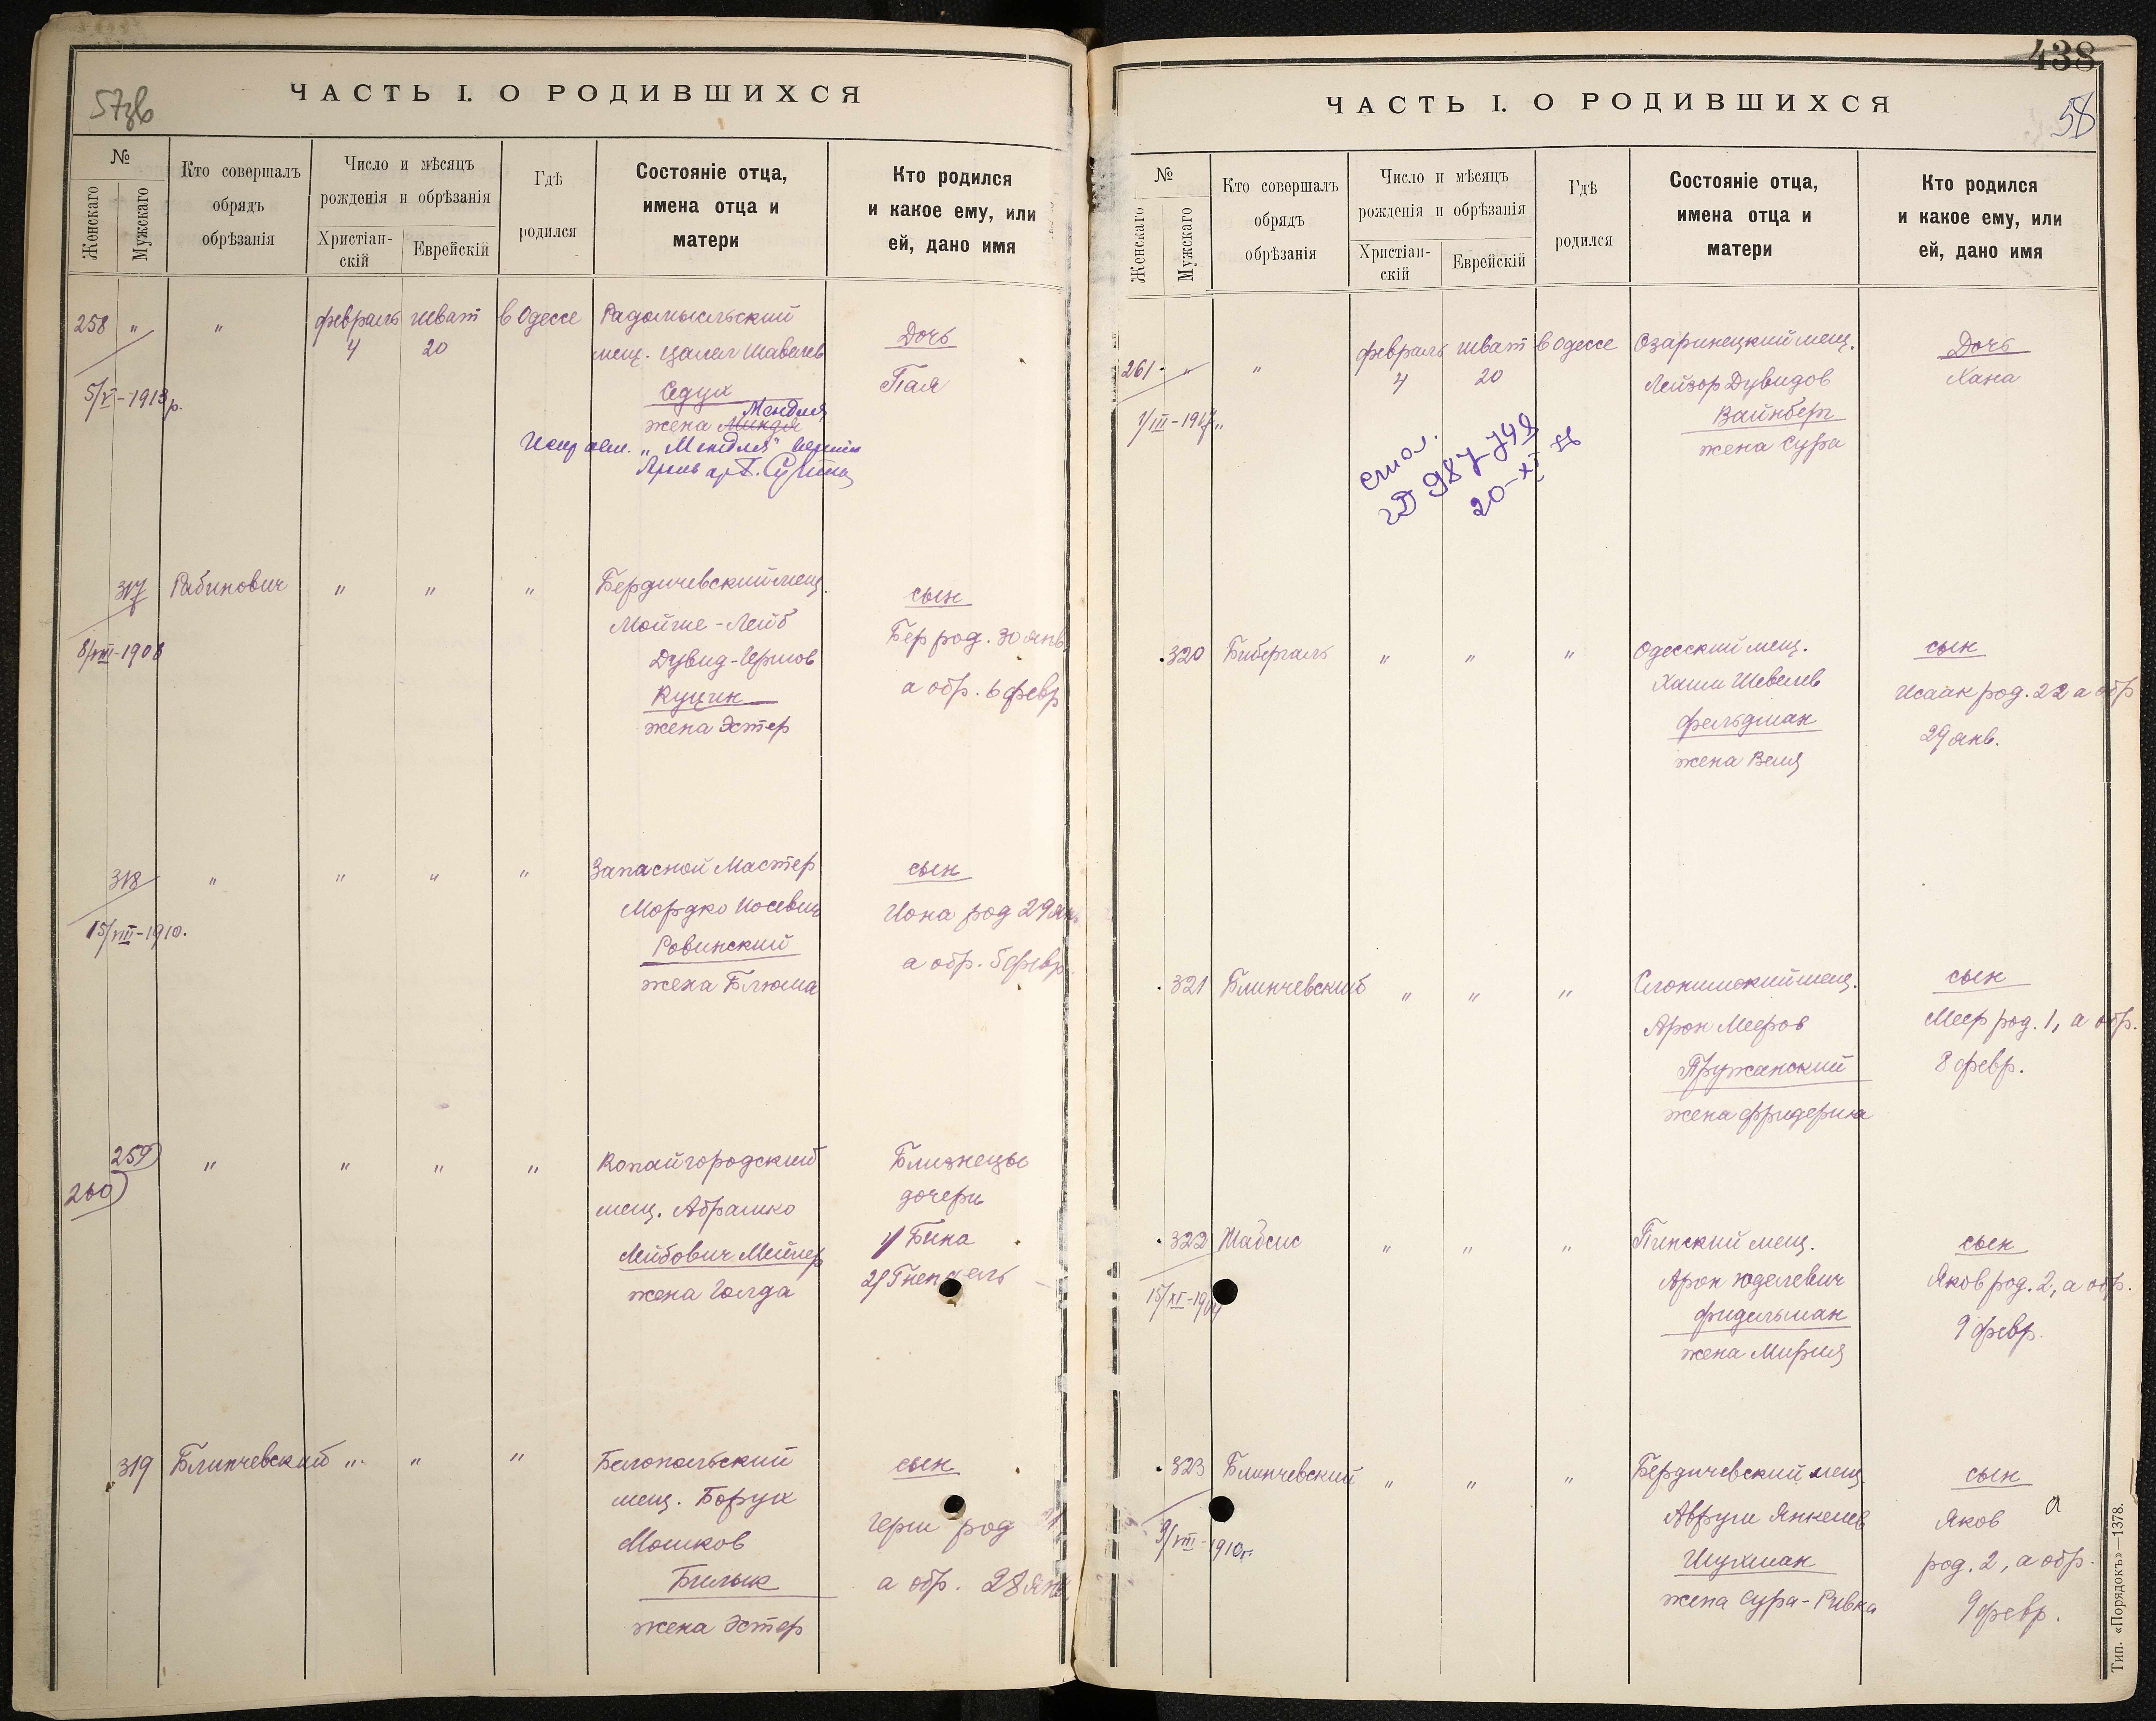 57зв
ЧАСТЬ I. О РОДИВШИХСЯ
№
Женскаго
Мужскаго
Кто совершалъ
обрядъ
обрѣзанія
Число и мѣсяцъ
рожденія и обрѣзанія
Христіан-
скій
Еврейскій
Гдѣ
родился
Состояніе отца,
имена отца и
матери
Кто родился
и какое ему, или
ей, дано имя
258 " " февраль шват в Одессе Радомысльский
4 20 мещ. Цалел Шавелев Дочь
Седух Пая
5/V-1913 р.
жена Миндя Мендля
"Мендля"
317 Рабинович " " " Бердичевский мещ. сын
Мойше-Лейб Бер род. 30 янв.
8/VIII-1908 Дувид-Гершов а обр. 6 февр
Куцик
жена Эстер
318 " " " " Запасной Мастер сын
Мордко Иосевич Иона род 29 янв
15/VIII-1910. Ровинский а обр. 5 февр
жена Блюма
259) " " " " Копайгородский Близнецы
260) мещ. Абрашко дочери
Лейбович Мейлер 1/ Бина
жена Голда 2/
319 Блинчевский " " " Белопольский сын
мещ. Борух
Мошков Герш род
Билык а обр. 28 янв
жена Эстер
438
58
ЧАСТЬ I. О РОДИВШИХСЯ
№
Женскаго
Мужскаго
Кто совершалъ
обрядъ
обрѣзанія
Число и мѣсяцъ
рожденія и обрѣзанія
Христіан-
скій
Еврейскій
Гдѣ
родился
Состояніе отца,
имена отца и
матери
Кто родился
и какое ему, или
ей, дано имя
261 " " февраль шват в Одессе Озаринецкий мещ. Дочь
4 20 Лейзор Дувидов Хана
Вайнберг
жена Сура
987749
20-XI
320 Бибергаль " " " Одесский мещ. сын
Хаим Шевелев Исаак род. 22 а обр
фельдман 29 янв.
жена Веля
321 Блинчевский " " " Слонимский мещ. сын
Арон Мееров Меер род. 1, а обр.
Пружанский 8 февр.
жена фридерика
322 Шабсис " " " Пинский мещ. сын
Арон Юделевич Яков род. 2, а обр.
фидельман 9 февр.
жена Мирия
323 Блинчевский " " " Бердичевский мещ. сын
Аврум Янкелев Яков
9/VIII-1910г. Шухман род. 2, а обр.
жена Сура-Ривка 9 февр.
Тип. «Порядокъ»—1378.